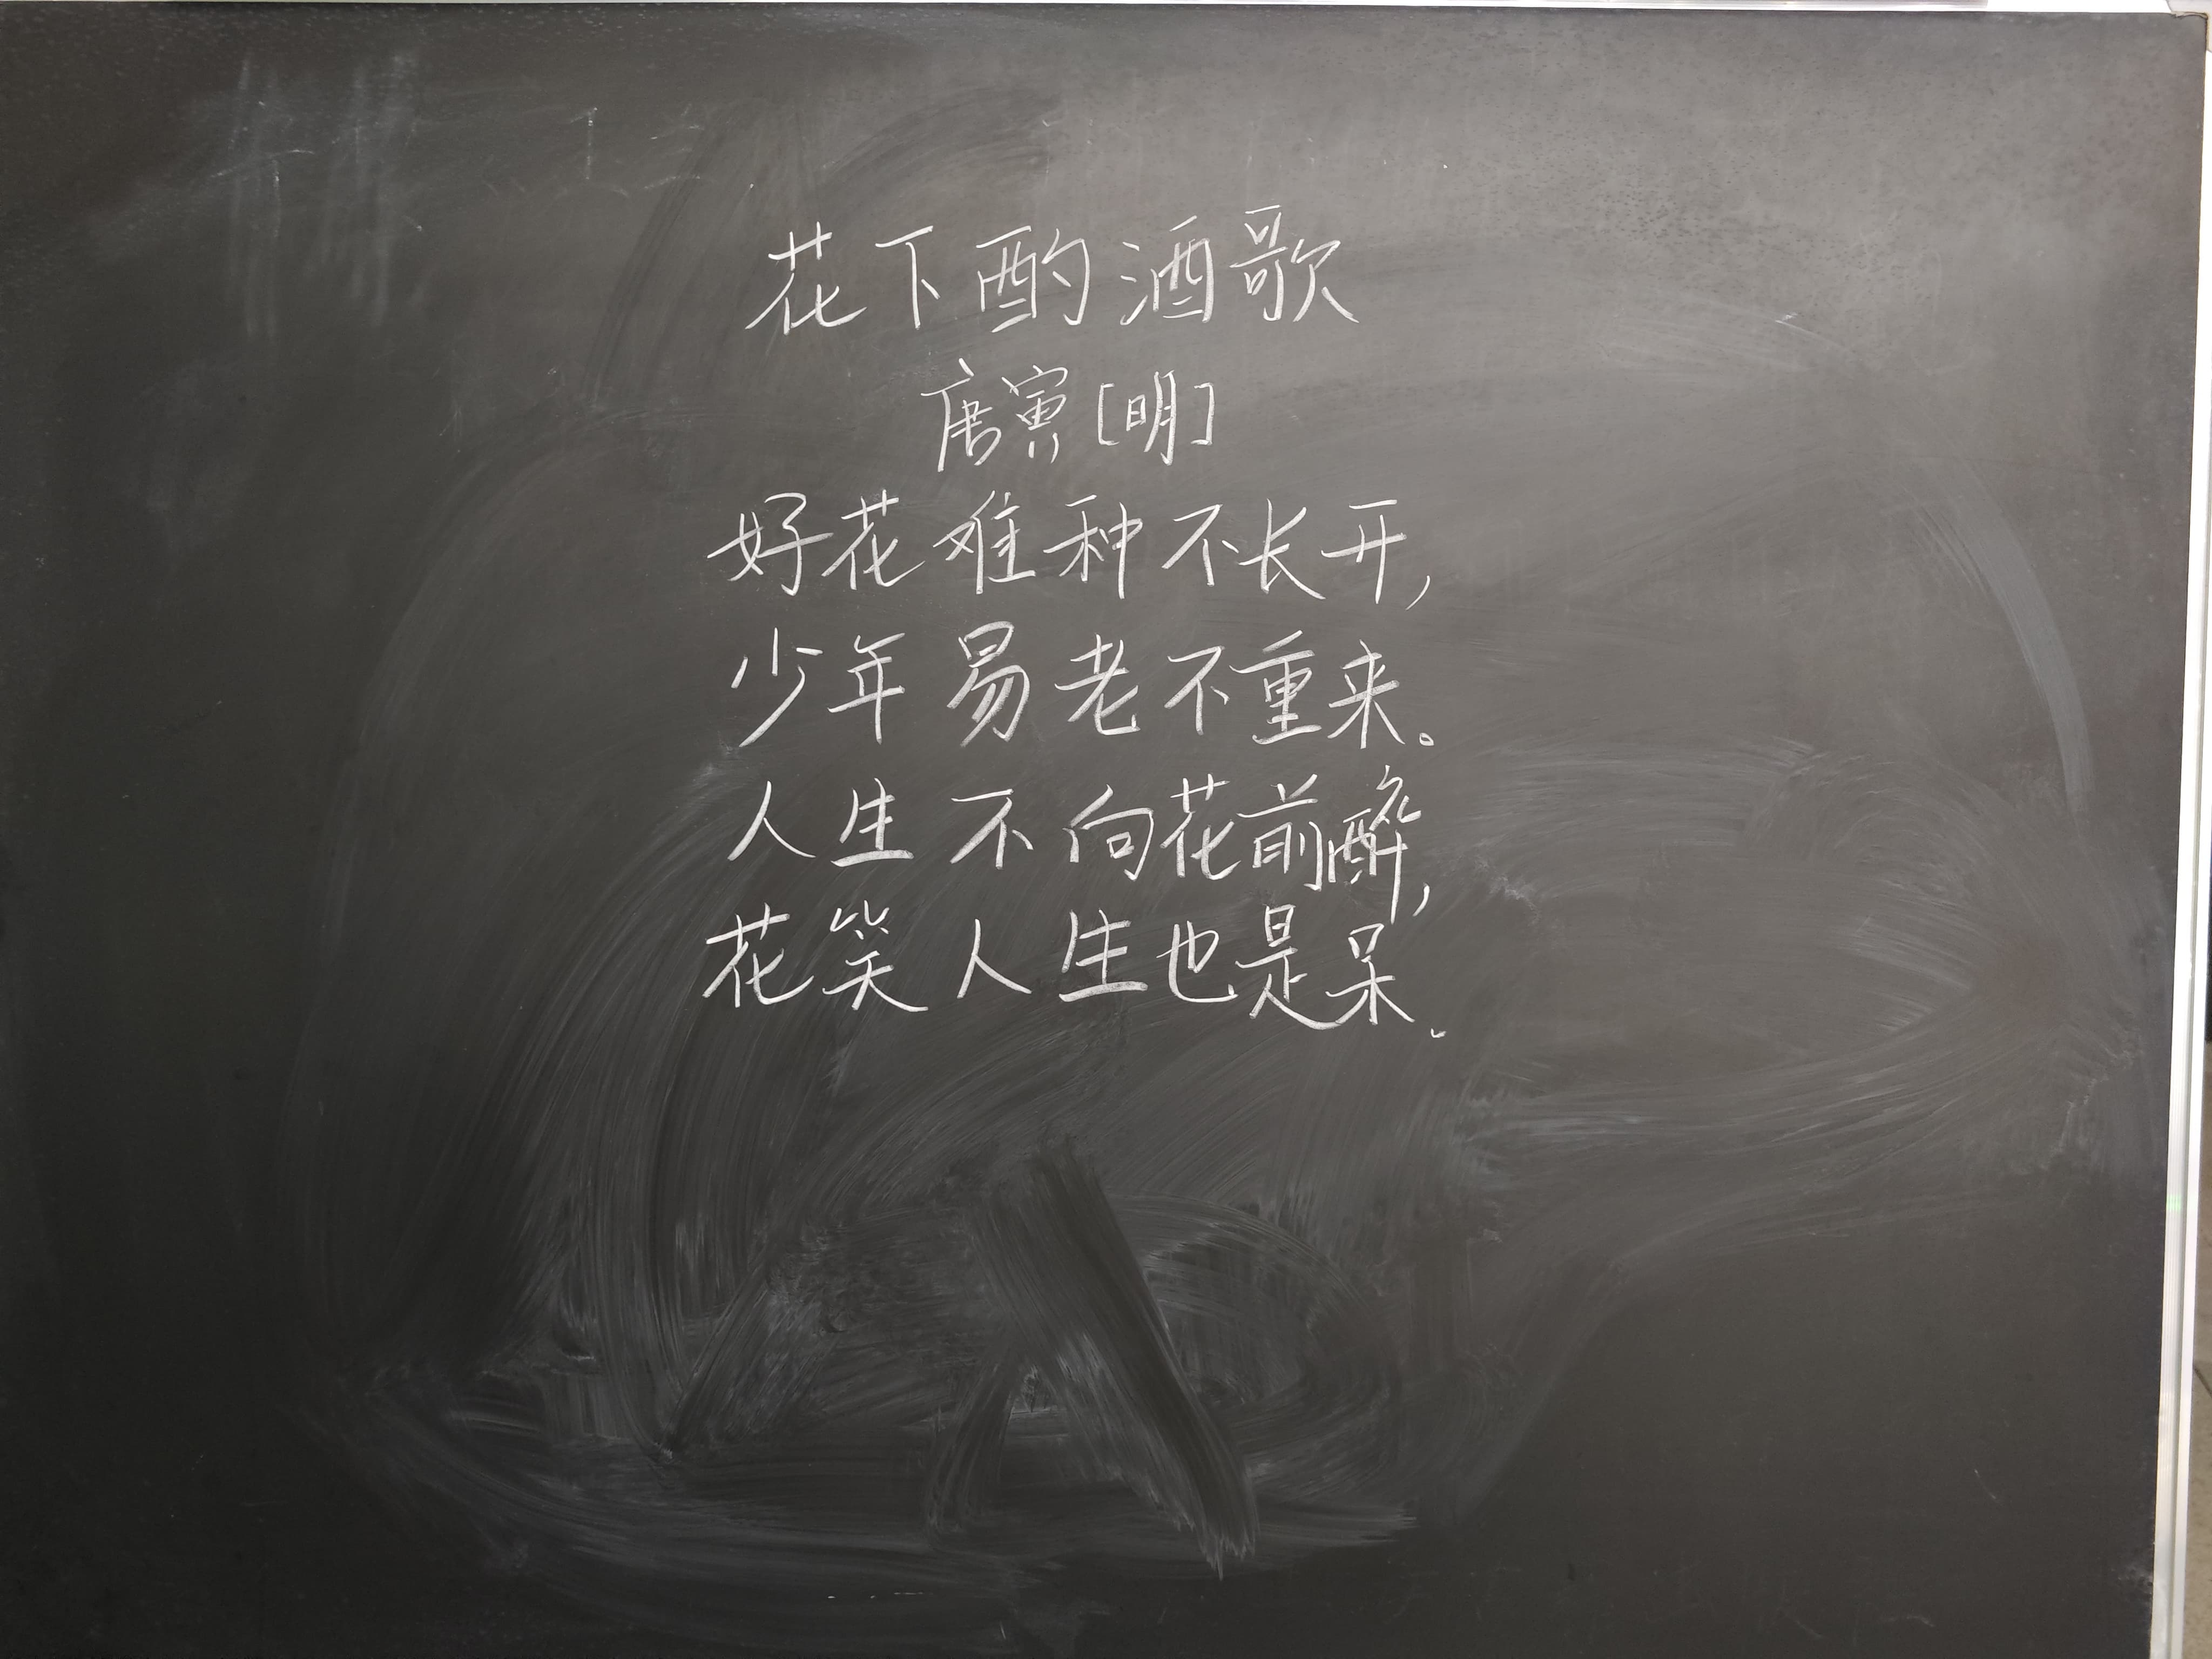 花下酌酒歌
唐寅[明]
好花难种不长开,
少年易老不重来。
人生不向花前醉,
花笑人生也是呆.